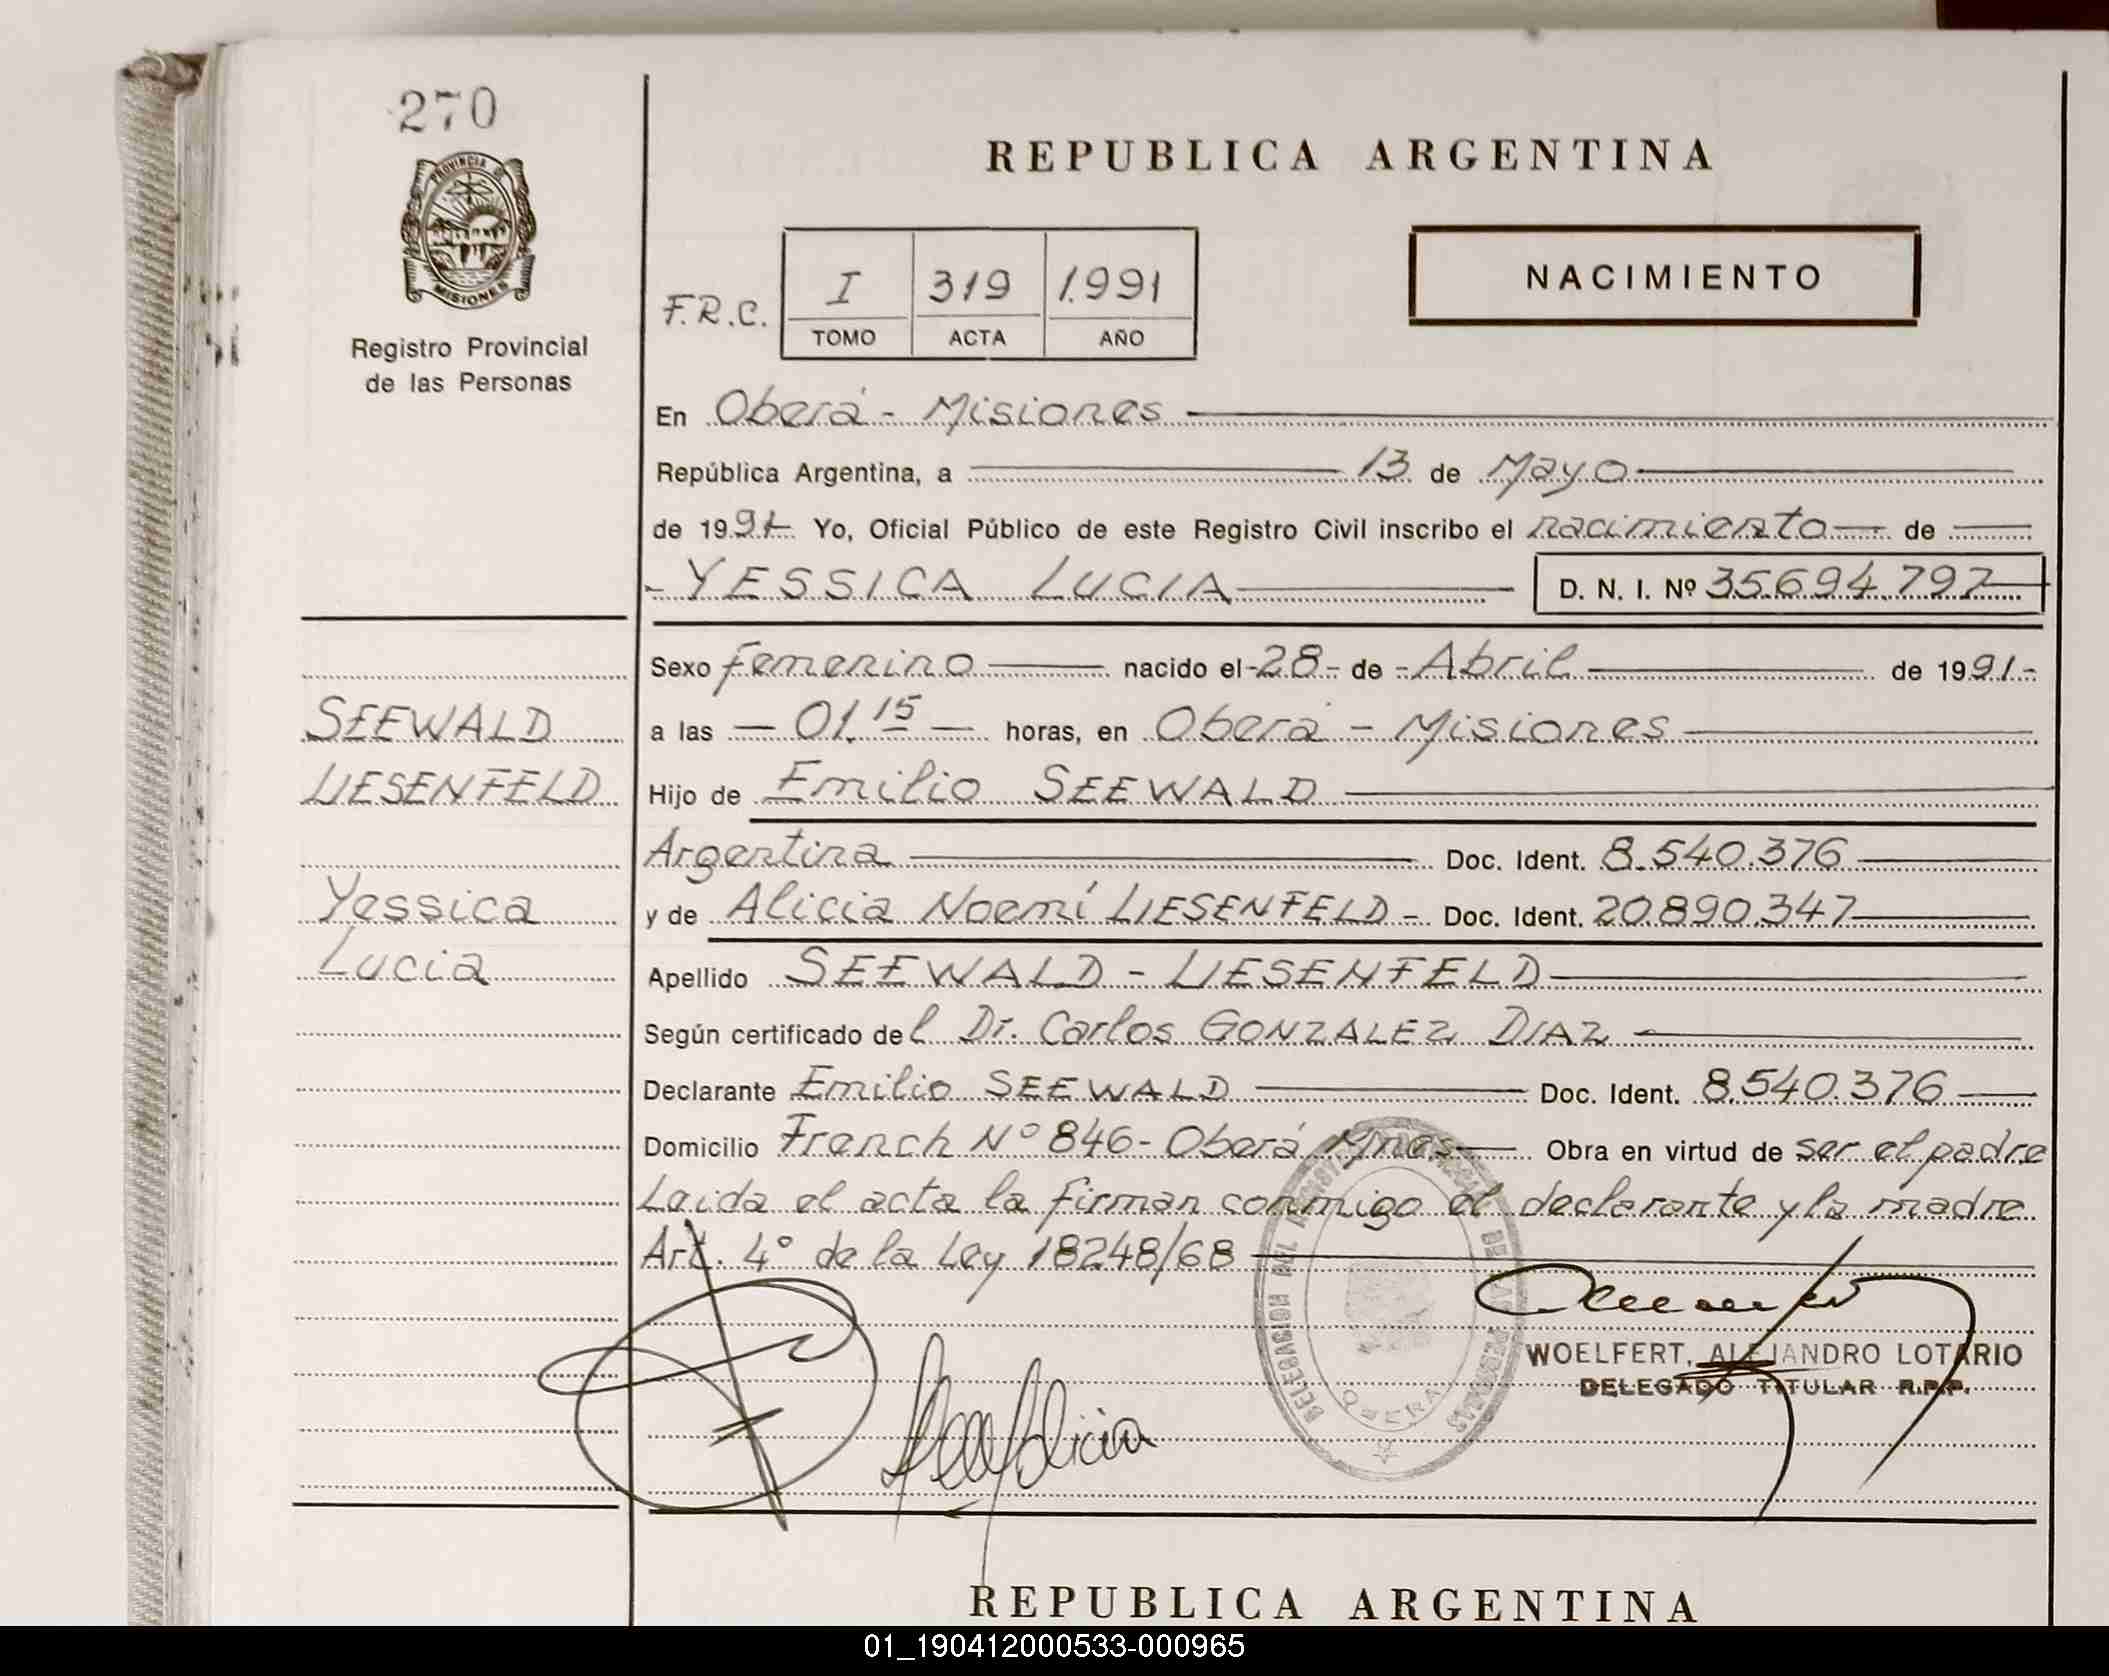 270
PROVINCIA DE
MISIONES
Registro Provincial
de las Personas
REPUBLICA ARGENTINA
NACIMIENTO
F.R.C.
I 319 1.991
TOMO ACTA AÑO
En Oberá - Misiones
República Argentina, a 13 de Mayo
de 1991 Yo, Oficial Público de este Registro Civil inscribo el nacimiento de
- YESSICA LUCIA D. N. I. Nº 35.694.797
Sexo femenino nacido el - 28 - de - Abril de 1991 -
SEEWALD
a las - 01.15 - horas, en Oberá - Misiones
LIESENFELD
Hijo de Emilio SEEWALD
Argentina Doc. Ident. 8.540.376
Yessica
y de Alicia Noemí LIESENFELD - Doc. Ident. 20.890.347
Lucia
Apellido SEEWALD - LIESENFELD
Según certificado del Dr. Carlos GONZALEZ DIAZ
Declarante Emilio SEEWALD Doc. Ident. 8.540.376
Domicilio French Nº 846 - Oberá Mnes Obra en virtud de ser el padre
Leida el acta la firman conmigo el declarante y la madre
Art. 4º de la Ley 18248/68
DELEGACION DEL
OBERA
Alicia
WOELFERT, ALEJANDRO LOTARIO
DELEGADO TITULAR R.P.P.
REPUBLICA ARGENTINA
01_190412000533-000965